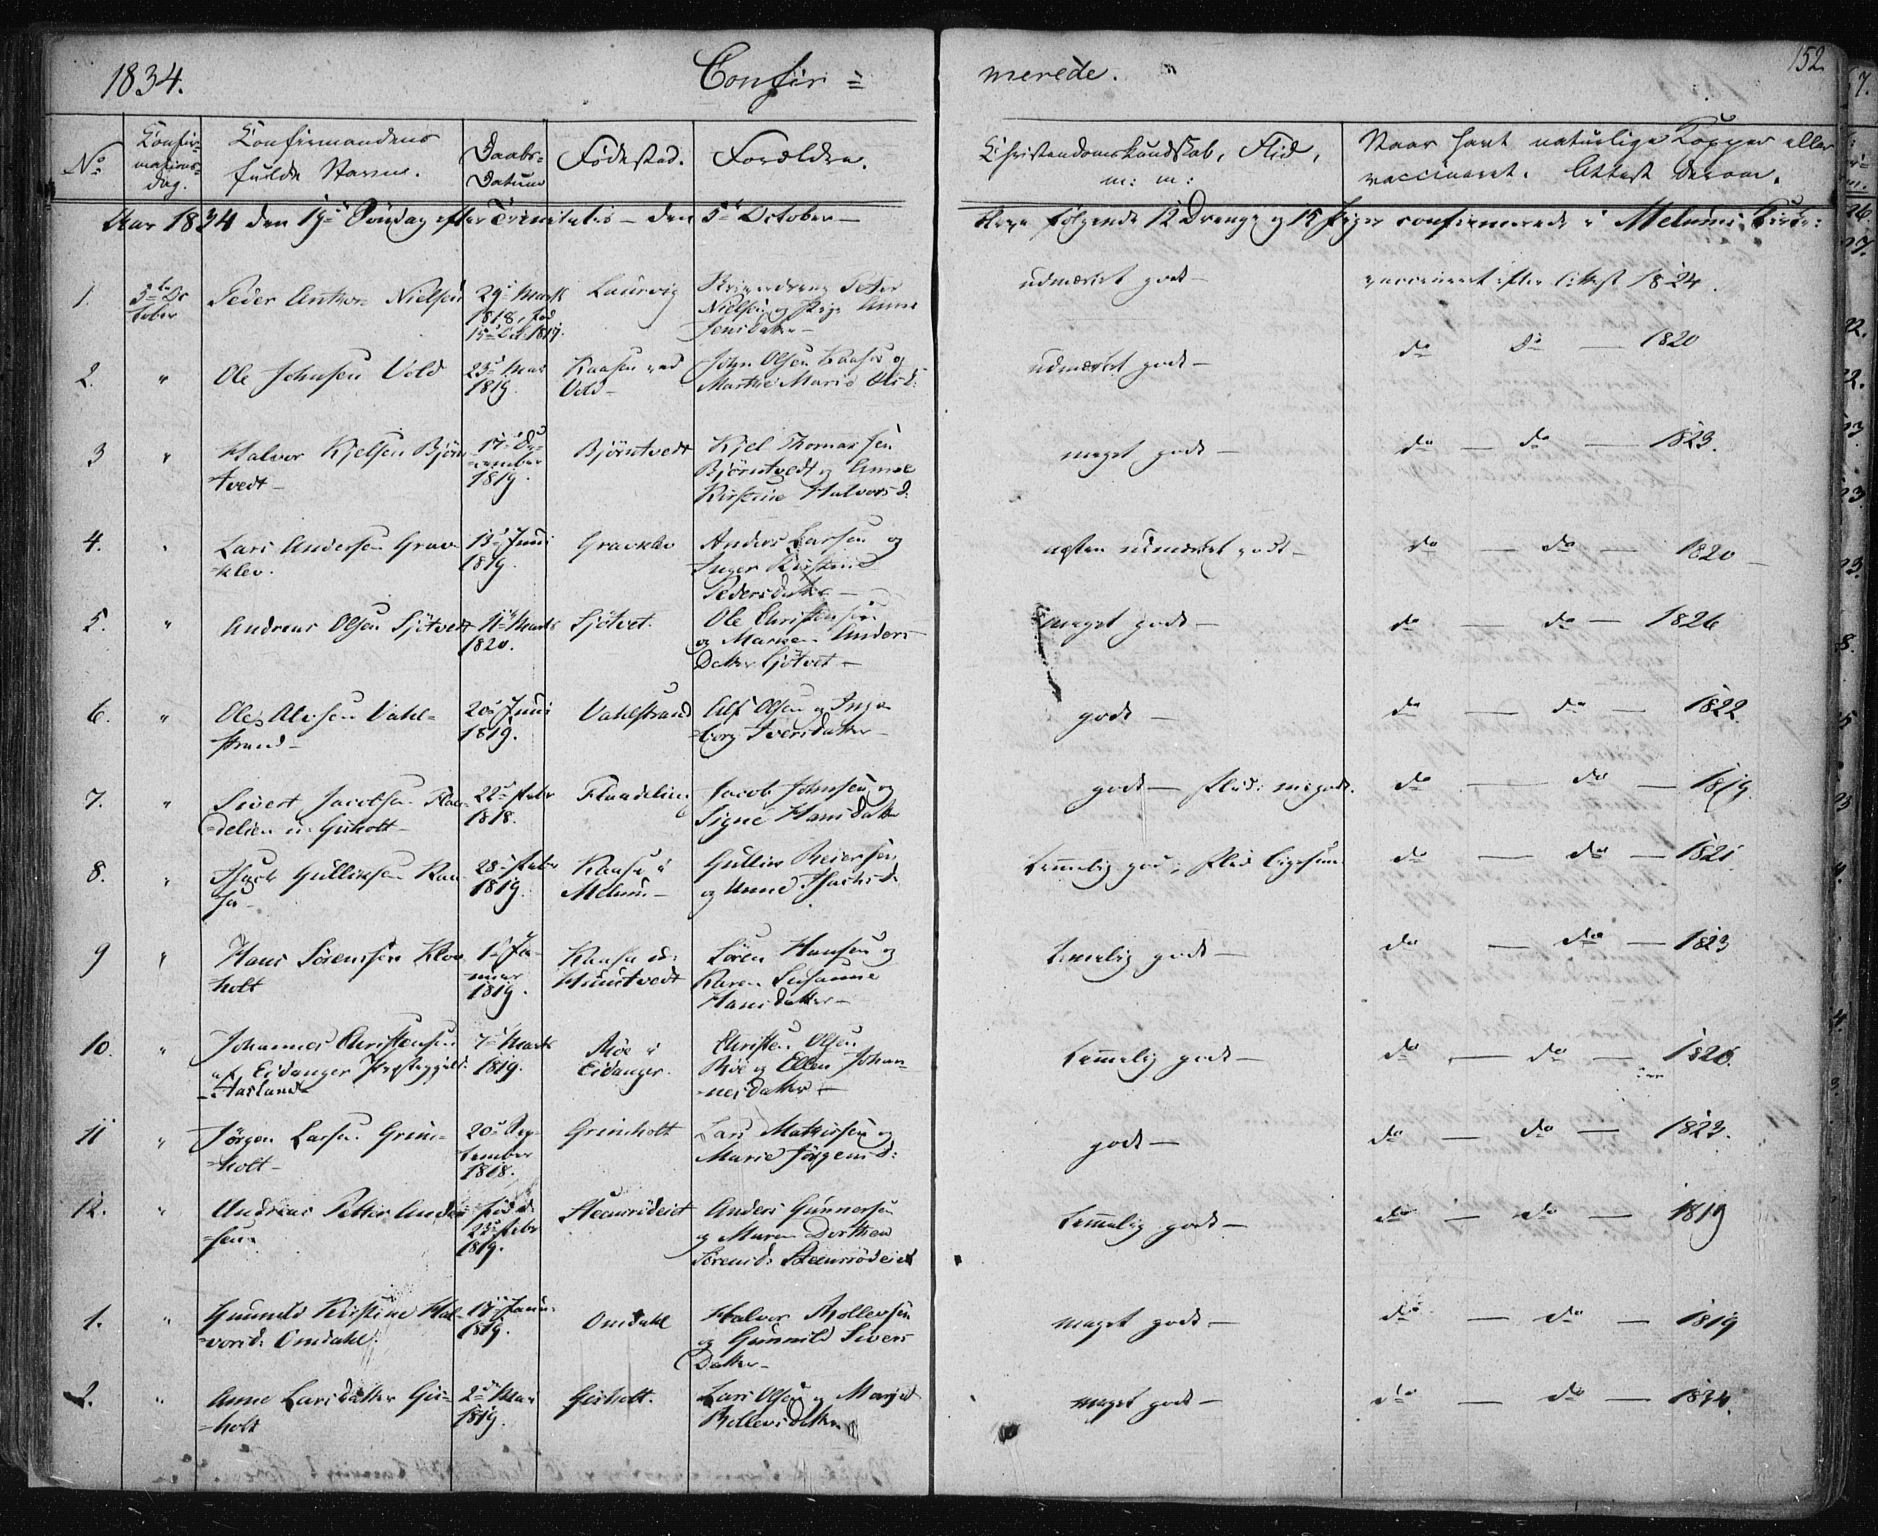 1834.
Confir=
merede.
152.
No
Konfir-
mations-
dag.
Konfirmandens
fulde Navne.
Daabs-
Datum
Fødested.
Forældre.
Christendomskundskab, Flid,
m: m:
Naar havt naturlige Kopper eller
vaccineret. Attest derom.
Aar 1834 den 19de Søndag efter Trinitatis – den 5te October –
følgende 12 Drenge og 15 Piger confirmerede i Melums Kirke:
1.
5te Oc
tober
Peder Anthon Nielsen
29de Marts
1818, fød
Laurvig
Peter
Nielsen og Pige Anne
Jensdatter –
udmærket godt –
vaccineret efter Attest 1824.
2.
"
Ole Johnsen Vold
23de Mai
1819.
Kaasen
Vold –
John Olsen Kaasen og
Marthe Marie Olsd:
udmærket godt –
do do — 1820
3
"
Halvor Kjelsen Bjørn
tvedt –
17de De-
cember
1819.
Bjørntvedt
Kjel Thomassen
Bjørntvedt og Anne
Kirstine Halvorsd:
meget godt –
do — do — 1823.
4.
"
Lars Andersen Grav-
klev.
13de Juni
1819.
Gravklev
Anders Larsen og
Inger Kirstine
Pedersdatter –
næsten udmærket godt –
do — do — 1820
5.
"
Andreas Olsen Sjøtvedt
11te Marts
1820.
Sjøtvet.
Ole Christensen
og Maren Anders
Datter Sjøtvet –
meget godt –
do — do — 1826
6.
"
Ole Alfsen Vahl=
strand –
20de Juni
1819.
Vahlstrand
Alf Olsen og Inge
borg Iversdatter –
godt –
do — do — 1822.
7.
"
Sivert Jacobsen Flan
delien Gisholt –
22de Febr
1818.
Jacob Johnsen og
Signe Hansdatter
godt – Flid: m: godt.
do — do — 1819.
8.
"
Isach Gulliksen Kaa
sa –
28de Febr
1819.
Kaasa i
Melum –
Gullik Reiersen
og Anne Isachsd:
temmelig god, Flid ligesaa
do — do — 1821
9
"
Hans Sørensen Klov
holt
1te Ja-
nuar
1819.
Kaasa
Hunstvedt
Søren Hansen og
Karen Susanne
Hansdatter –
temmelig godt –
do — do — 1823
10.
"
Johannes Christensen
af Eidanger Præstegjeld:
Aasland
7de Marts
1819.
Røe i
Eidanger.
Christen Olsen
Røe og Ellen Johan-
nesdatter –
temmelig godt –
do — do — 1826.
11
"
Jørgen Larsen Grim=
holt –
20de Sep-
tember
1818.
Grimholt
Lars Mathisen og
Marie Jørgensd:
godt –
do — do — 1823.
12.
"
Andreas Petter Ander
sen
fød d:
25de Febr
1819.
Steensrødeiet
Anders Gunnersen
og Maren Dorthea
Sørensd: Steensrødeiet
temmelig godt –
do — do — 1819
1.
"
Gunnild Kirstine Hal-
vorsd: Omdahl.
17de Janu.
1819.
Omdahl
Halvor Rollevsen
og Gunnild Sivers
Datter –
meget godt –
do — do — 1819
2.
"
Anne Larsdatter Gis=
holt
2de Mai
1819.
Gisholt.
Lars Olsen og Margit
Rollevsdatter
meget godt –
do — do — 1834.